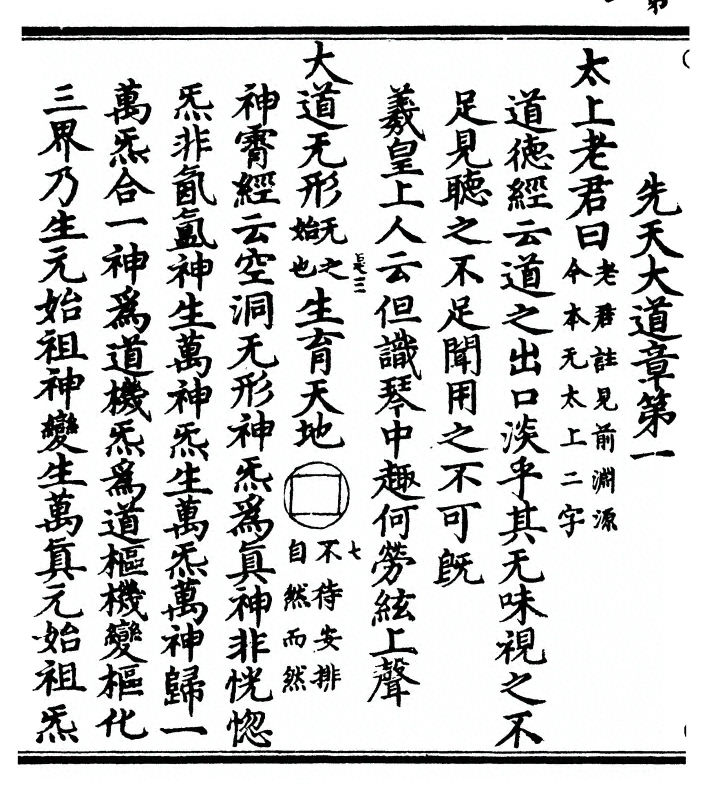 先天大道章第一
太上老君曰老君註見前淵源今本无太上二字
道德經云道之出口淡乎其无味視之不
足見聽之不足聞用之不可旣
羲皇上人云但識琴中趣何勞絃上聲
大道无形无之始也長三生育天地不待安排自然而然七
神霄經云空洞无形神炁爲眞神非恍惚
炁非氤氳神生萬神炁生萬炁萬神歸一
萬炁合一神爲道機炁爲道樞機變樞化
三界乃生元始祖神變生萬眞元始祖炁